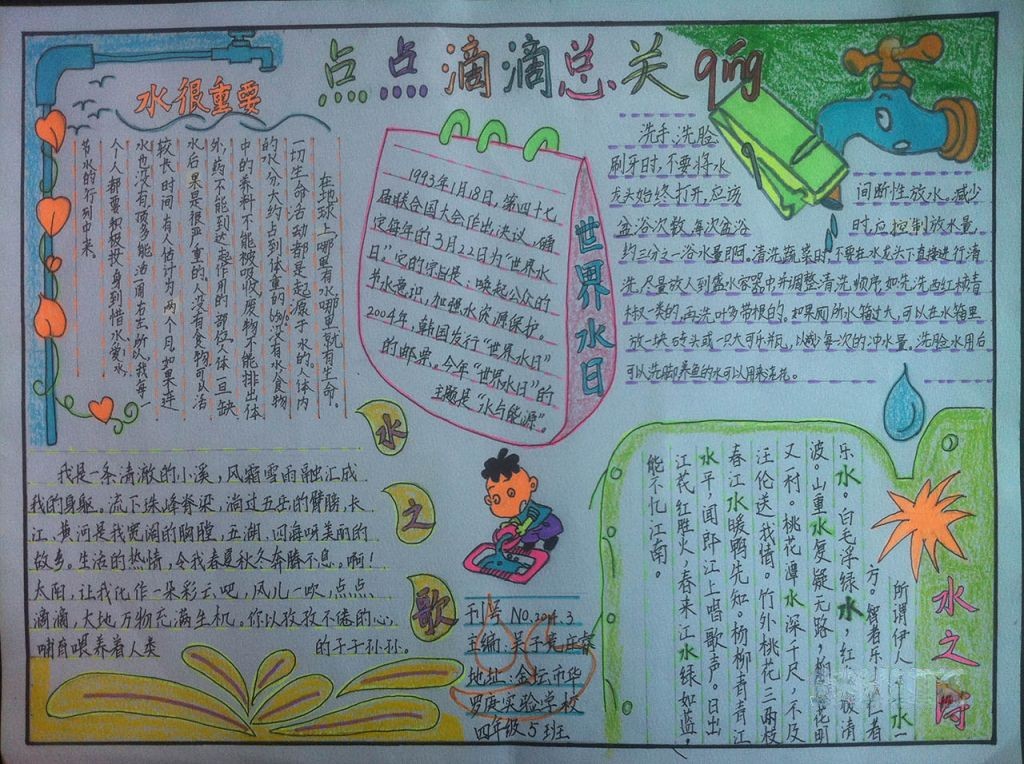 点点滴滴总关qing
水很重要
在地球上哪里有水哪里就有生命。
一切生命活动都是起源于水的。人体内
的水分大约占到体重的65%。没有水食物
中的养料不能被吸收废物不能排出体
外，药不能到达起作用的部位。人体一旦缺
水后果是很严重的。人没有食物可以活
较长时间有人估计为两个月。如果连
水也没有顶多能活一周左右。所以我每一
个人都要积极投身到惜水爱水，
节水的行列中来。
1993年1月18日，第四十七
届联合国大会作出决议，确
定每年的3月22日为“世界水
日”。它的宗旨是：唤起公众的
节水意识，加强水资源保护。
2004年，韩国发行“世界水日”
的邮票。今年“世界水日”的
主题是“水与能源”。
世界水日
洗手、洗脸
刷牙时，不要将水
龙头始终打开，应该
间断性放水。减少
盆浴次数，每次盆浴
时应控制放水量，
约三分之一浴水量即可。清洗蔬菜时，不要在水龙头下直接进行清
洗，尽量放入到盛水容器中并调整清洗顺序如先洗西红柿青
椒一类的，再洗叶多带根的。如果厕所水箱过大，可以在水箱里
放一块砖头或一只大可乐瓶，以减少每一次的冲水量。洗脸水用后
可以洗脚养鱼的水可以用来浇花。
水之歌
我是一条清澈的小溪，风霜雪雨融汇成
我的身躯。流下珠峰脊梁，淌过五岳的臂膀，长
江、黄河是我宽阔的胸膛，五湖、四海呀美丽的
故乡。生活的热情，令我春夏秋冬奔腾不息。啊！
太阳，让我化作一朵彩云吧，风儿一吹，点点
滴滴，大地万物充满生机。你以孜孜不倦的心，
哺育喂养着人类的子子孙孙。
刊号 NO.2014.3
主编：
地址：金坛市华
罗庚实验学校
四年级5班
水之诗
所谓伊人
水一
方。智者乐
乐水。白毛浮绿水，红
清
波。山重水复疑无路，柳
花明
又一村。桃花潭水深千尺，不及
汪伦送我情。竹外桃花三两枝
春江水暖鸭先知。杨柳青青江
水平，闻郎江上唱歌声。日出
江花红胜火，春来江水绿如蓝，
能不忆江南。